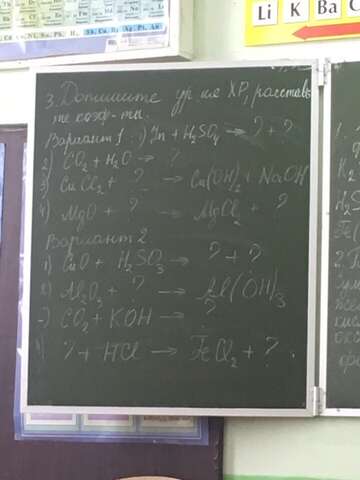 Li K Ba C
3. Допишите ур-ие ХР, расставь
те коэф-ты.
Вариант 1. 1) Zn + H2SO4 → ? + ?
2) CO2 + H2O → ?
3) CuCl2 + ? → Cu(OH)2 + NaOH
4) MgO + ? → MgCl2 + ?
Вариант 2
1) CuO + H2SO3 → ? + ?
2) Al2O3 + ? → Al(OH)3
CO2 + KOH → ?
? + HCl → FeCl2 + ?
1.
K2
H2S
Fe(
2.